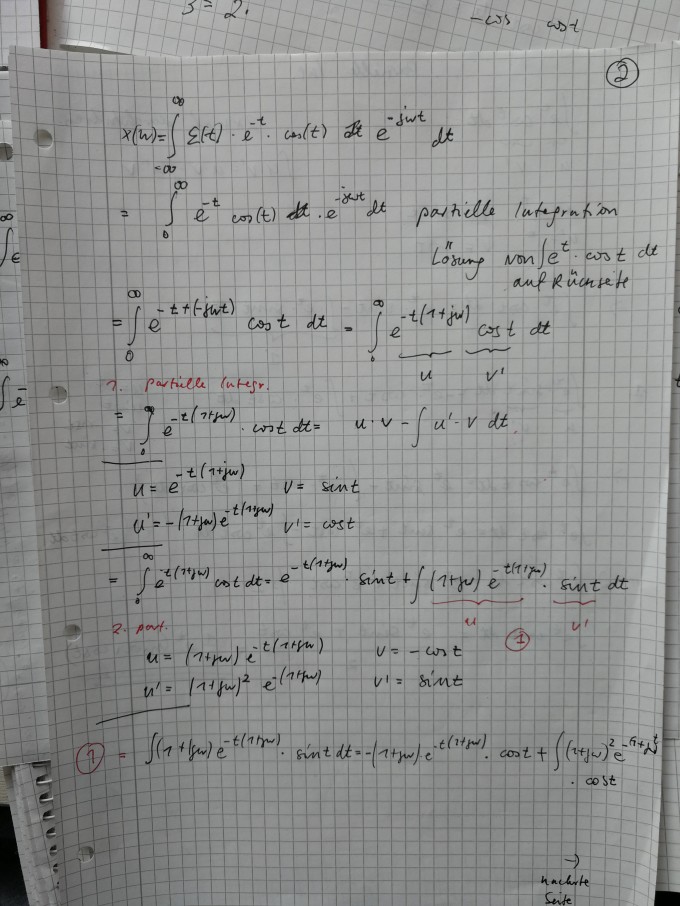 3 = 2.
-cos cost
2
x(w)=∫_{-∞}^{∞} Ɛ(t) · e^{-t} · cos(t) e^{-jwt} dt
= ∫_0^∞ e^{-t} cos(t) · e^{-jwt} dt partielle Integration
Lösung von ∫e^t · cos t dt
auf Rückseite
= ∫_0^∞ e^{-t+(-jwt)} cos t dt = ∫_0^∞ e^{-t(1+jw)} cos t dt
u v'
1. partielle Integr.
= ∫_0^∞ e^{-t(1+jw)} · cos t dt = u · v - ∫ u' · v dt
u = e^{-t(1+jw)} v = sin t
u' = -(1+jw) e^{-t(1+jw)} v' = cos t
= ∫_0^∞ e^{-t(1+jw)} cos t dt = e^{-t(1+jw)} · sin t + ∫ (1+jw) e^{-t(1+jw)} · sin t dt
u v'
2. part. 1
u = (1+jw) e^{-t(1+jw)} v = -cos t
u' = (1+jw)² e^{-(1+jw)} v' = sin t
1 = ∫(1+jw) e^{-t(1+jw)} · sin t dt = -(1+jw) e^{-t(1+jw)} · cos t + ∫(1+jw)² e^{-(1+jw)t}
· cos t
→
nächste
Seite